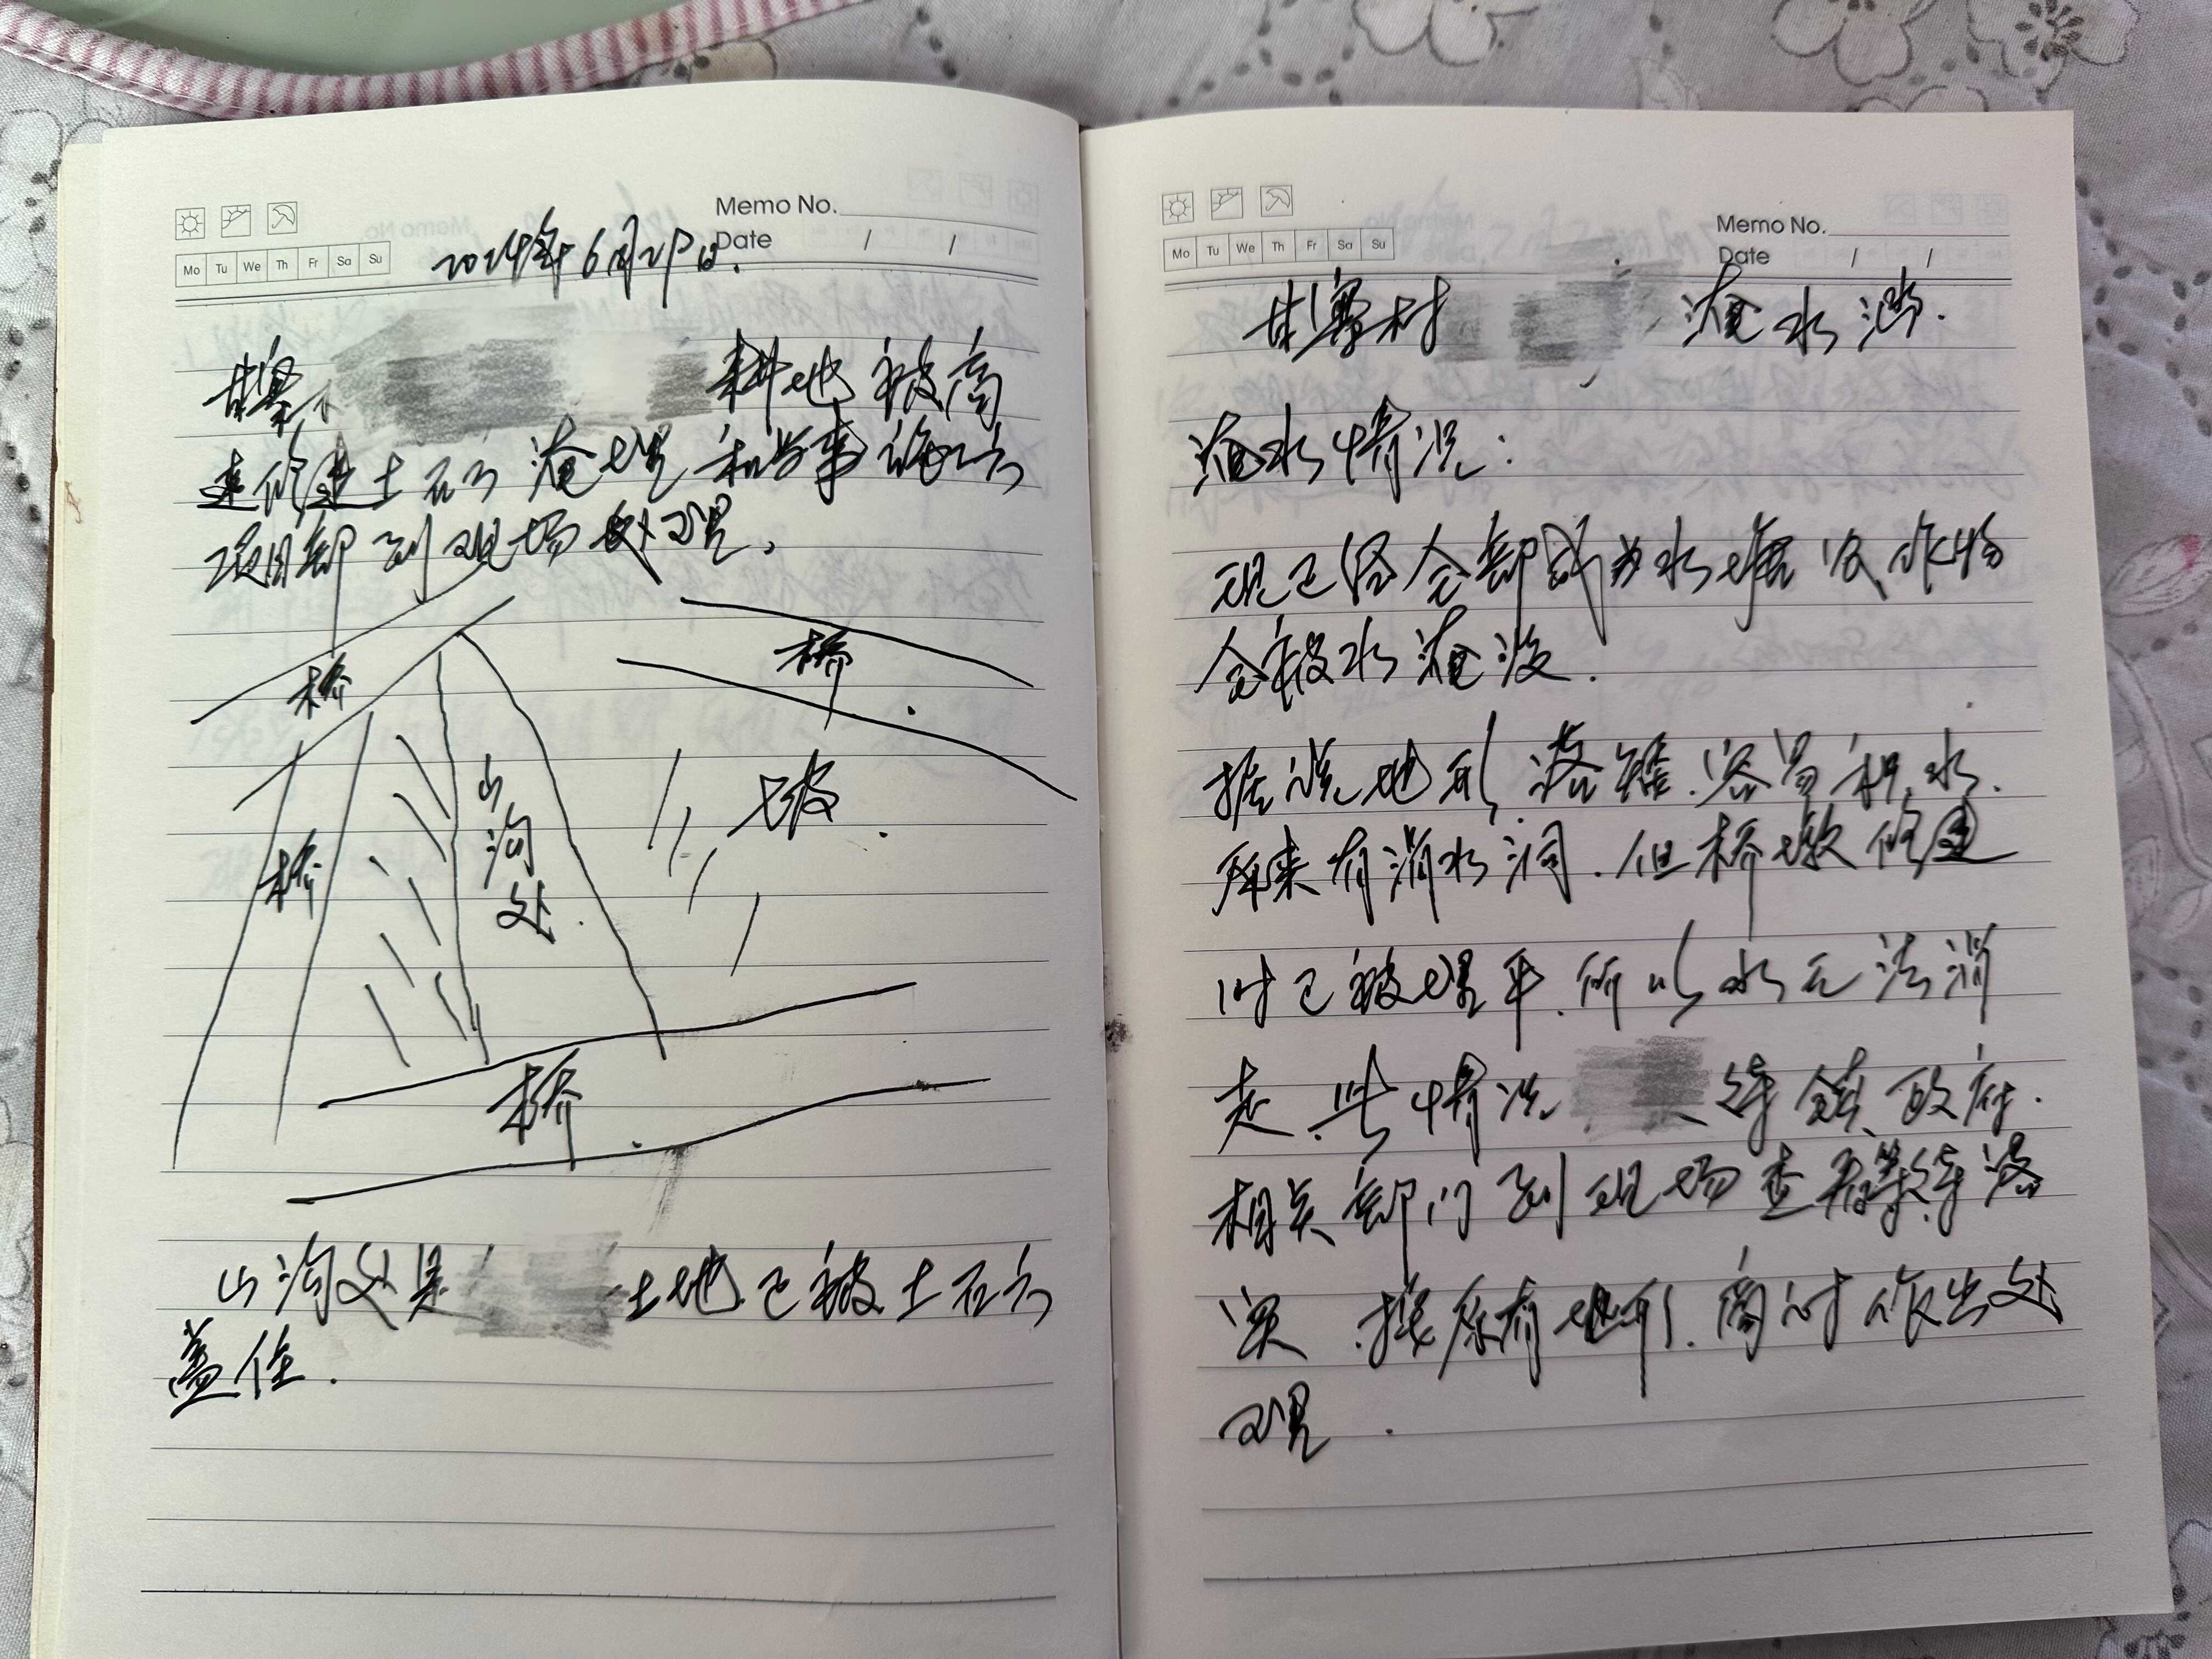 Memo No.
Date / /
Mo Tu We Th Fr Sa Su
2024年6月27日.
甘寨
耕地被高
速修建土石方淹埋 和当事
项目部到现场处理。
桥
桥
桥
山沟处.
坡.
桥.
山沟处是 土地已被土石方
盖住.
Memo No.
Date / /
Mo Tu We Th Fr Sa Su
甘寨村 淹水涝.
淹水情况:
现已经全部成为水塘 农作物
全被水淹没.
据说地形 容易积水.
原来有消水洞.但桥墩修建
时已被埋平.所以水无法消
走.此情况 待镇政府.
相关部门到现场查看等待落
实.按原有地形.商讨作出处
理.